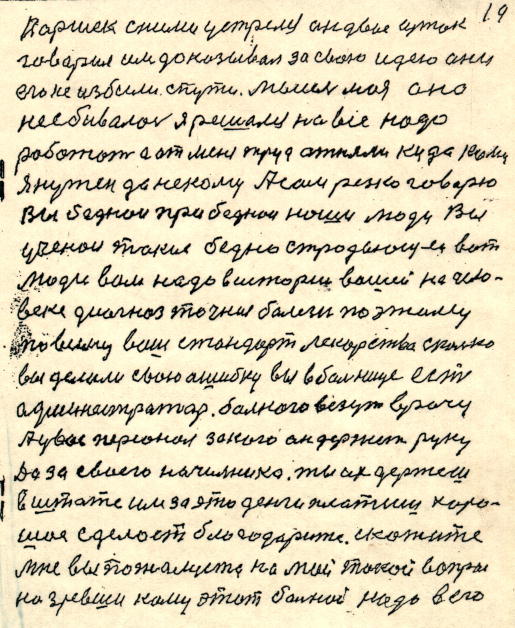 19
Коршек сними устрелу андвое суток
говарил им доказывал за свою идею они
его не избили. спути. мысля моя она
несбивалоя я решалу на все надо
работат а от мены труд атняли куда кому
я нужен да некому А сам резко говарю
Вы бедной при бедной наши люди Вы
ученои такие бедно страдающ вот
люди вам надо в истории вашей на чело-
веке диогноз точныи болезн поэтаму
по всему ваш стандарт лекарства сколко
вы делали свою ашибку вы в балнице есть
администратар. балного везут врачу
А у вас персонал за кого он держит руку
Да за своего началника. ты их держеш
в штате им за это денги платиш харо-
шое сделост благодарите. скажите
мне вы пожалуста на мой такой вапрос
назревши кому этот балной надо всего